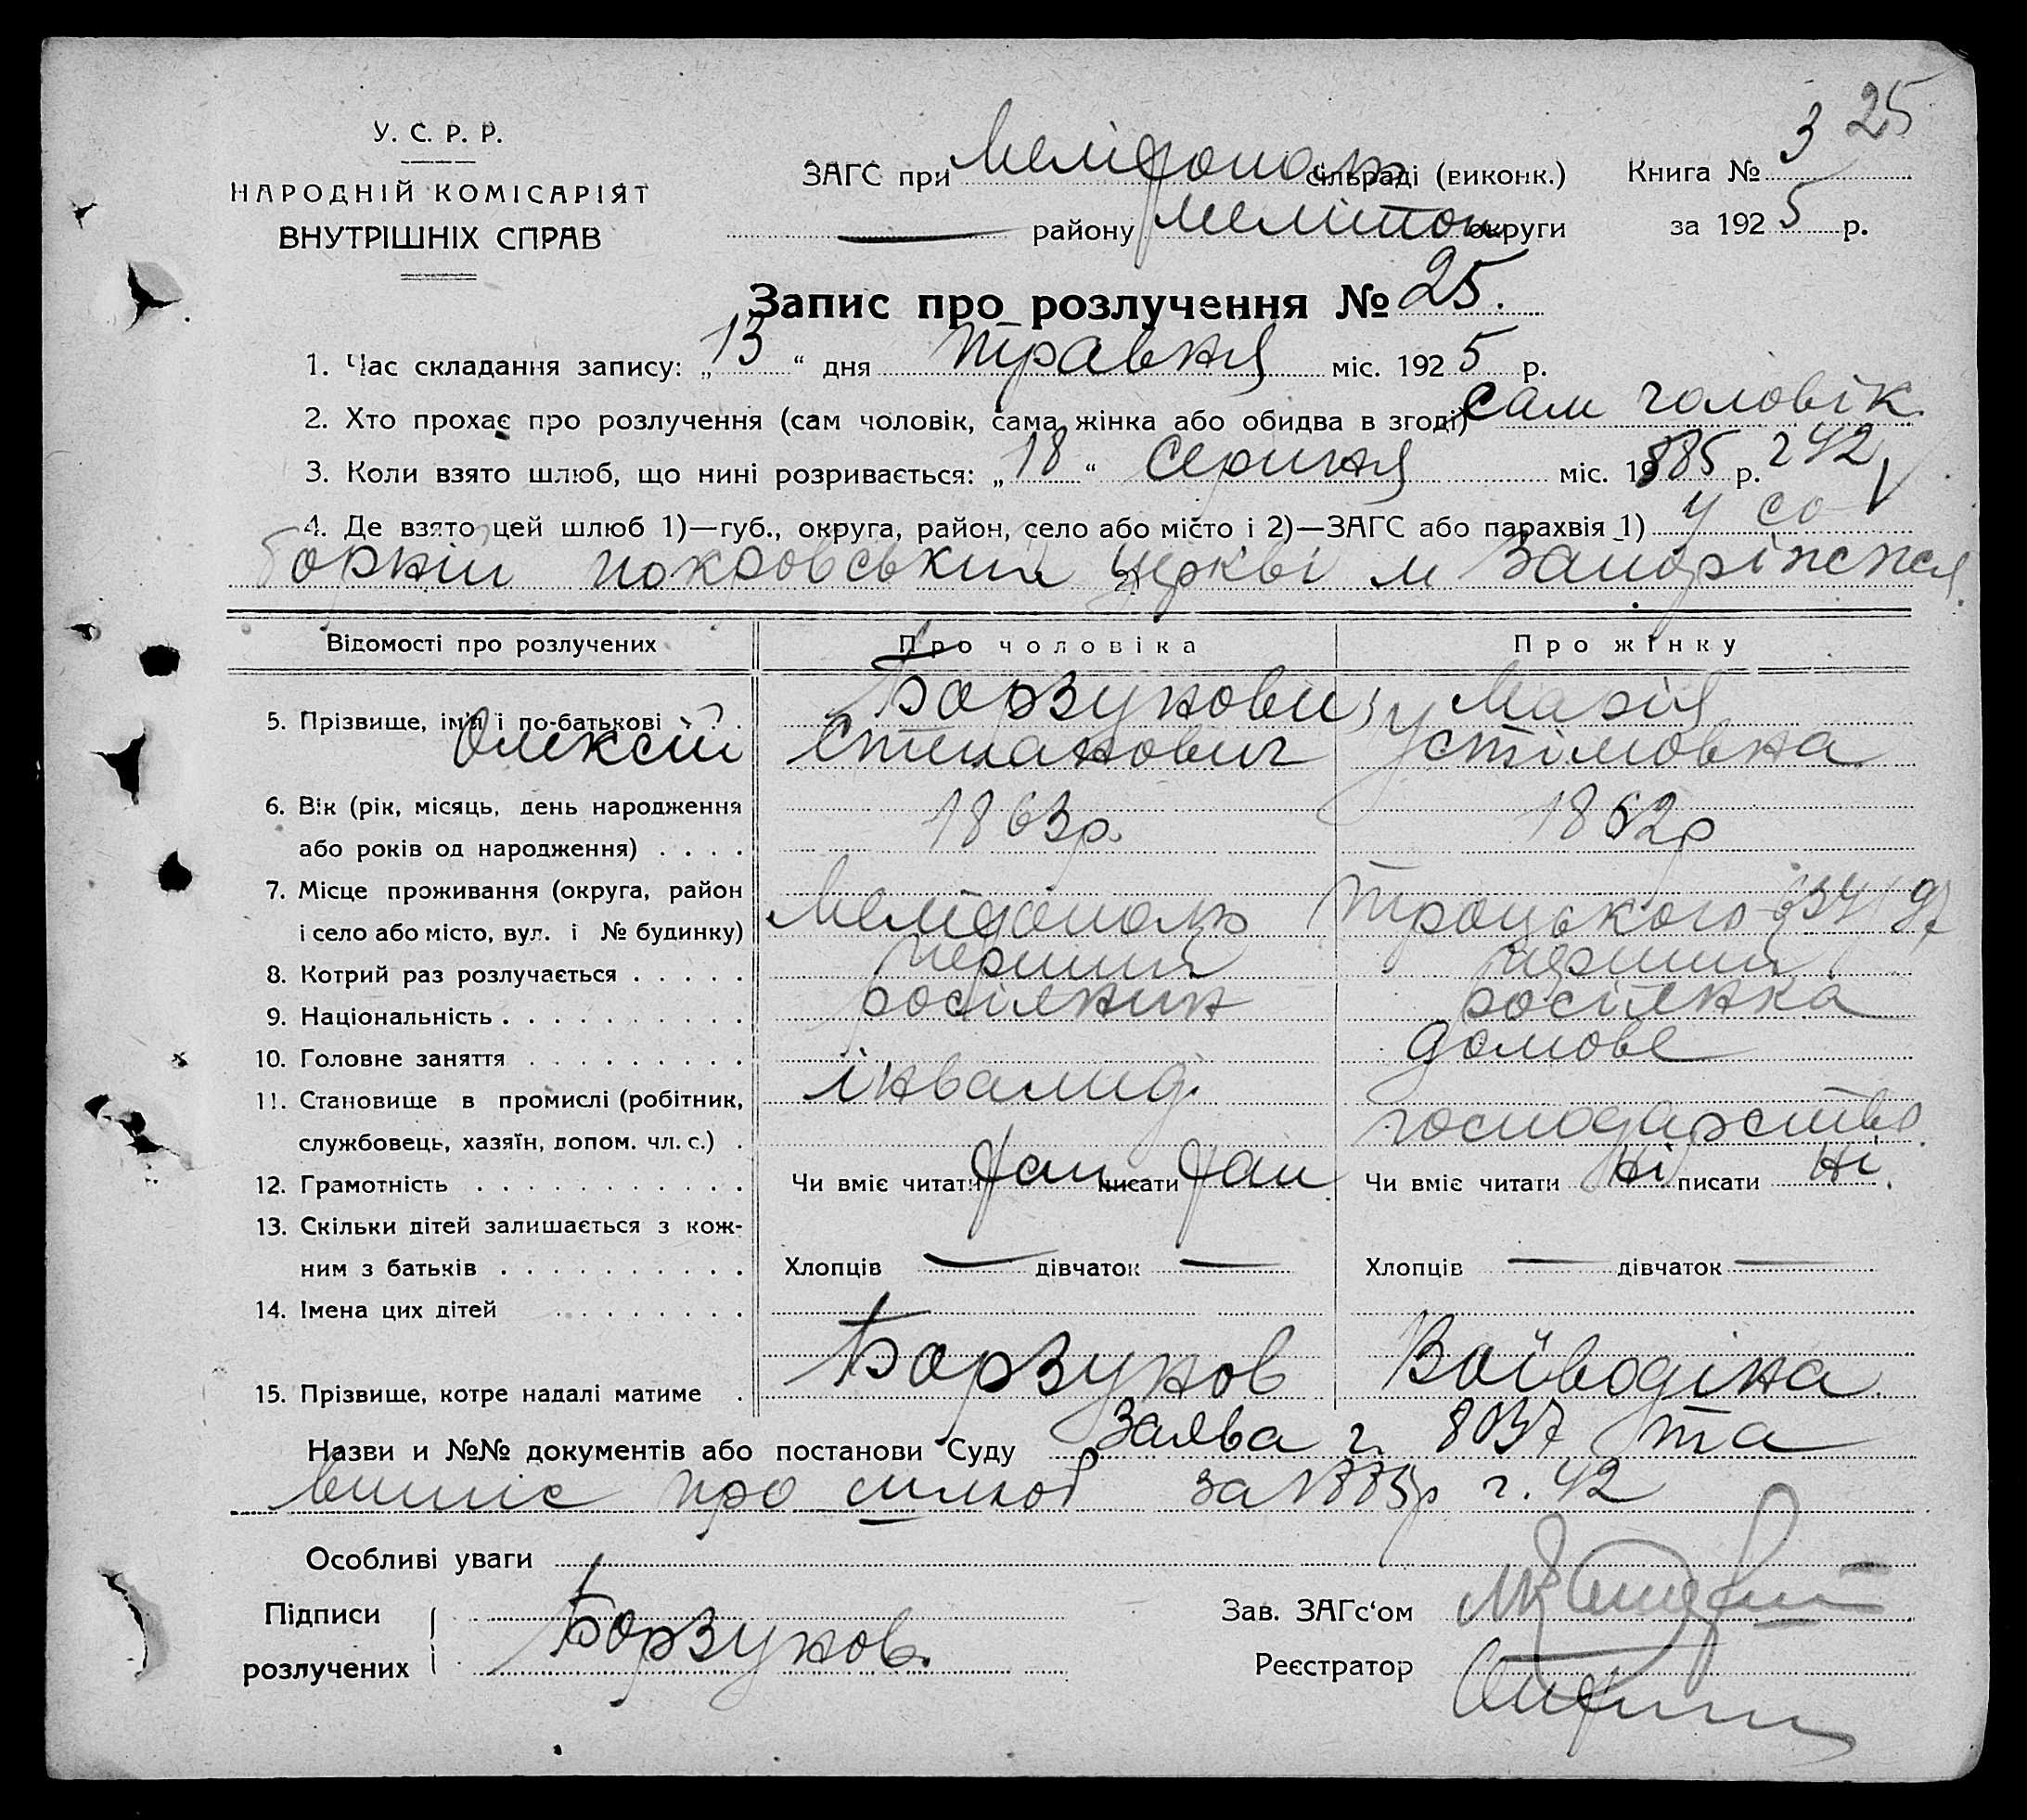 3 25
У. С. Р. Р.
НАРОДНІЙ КОМІСАРІЯТ
ВНУТРІШНІХ СПРАВ
ЗАГС при Мелідополь сільраді (виконк.) Книга №
— району Мелітоп округи за 1925 р.
Запис про розлучення № 25.
1. Час складання запису: „13“ дня травня міс. 1925 р.
2. Хто прохає про розлучення (сам чоловік, сама жінка або обидва в згоді) сам чоловік.
3. Коли взято шлюб, що нині розривається: „18“ серпня міс. 1885 р. ч 42
4. Де взято цей шлюб 1)—губ., округа, район, село або місто і 2)—ЗАГС або парахвія 1) у со
борній покровській церкві м Запоріжжя
Відомості про розлучених Про чоловіка Про жінку
5. Прізвище, ім'я і по-батькові Борзунови Марія
Олексій Степанович Устімовна
6. Вік (рік, місяць, день народження
або років од народження) . . . . 1863р. 1862р
7. Місце проживання (округа, район
і село або місто, вул. і № будинку) Мелідополь Троцького
8. Котрий раз розлучається . . . . . перший перший
9. Національність . . . . . . . . . . росіянин росіянка
10. Головне заняття . . . . . . . . . домове
11. Становище в промислі (робітник, інвалид.
службовець, хазяїн, допом. чл. с.) . господарство.
12. Грамотність . . . . . . . . . . . Чи вміє читати так писати так Чи вміє читати ні писати ні.
13. Скільки дітей залишається з кож-
ним з батьків . . . . . . . . . . Хлопців — дівчаток — Хлопців — дівчаток —
14. Імена цих дітей . . . . . . . .
15. Прізвище, котре надалі матиме . Борзунов Воїводіна
Назви и №№ документів або постанови Суду Заява ч. 8037 та
випис про шлюб за 1885р ч. 42
Особливі уваги
Підписи
розлучених Борзунов.
Зав. ЗАГс‘ом
Реєстратор